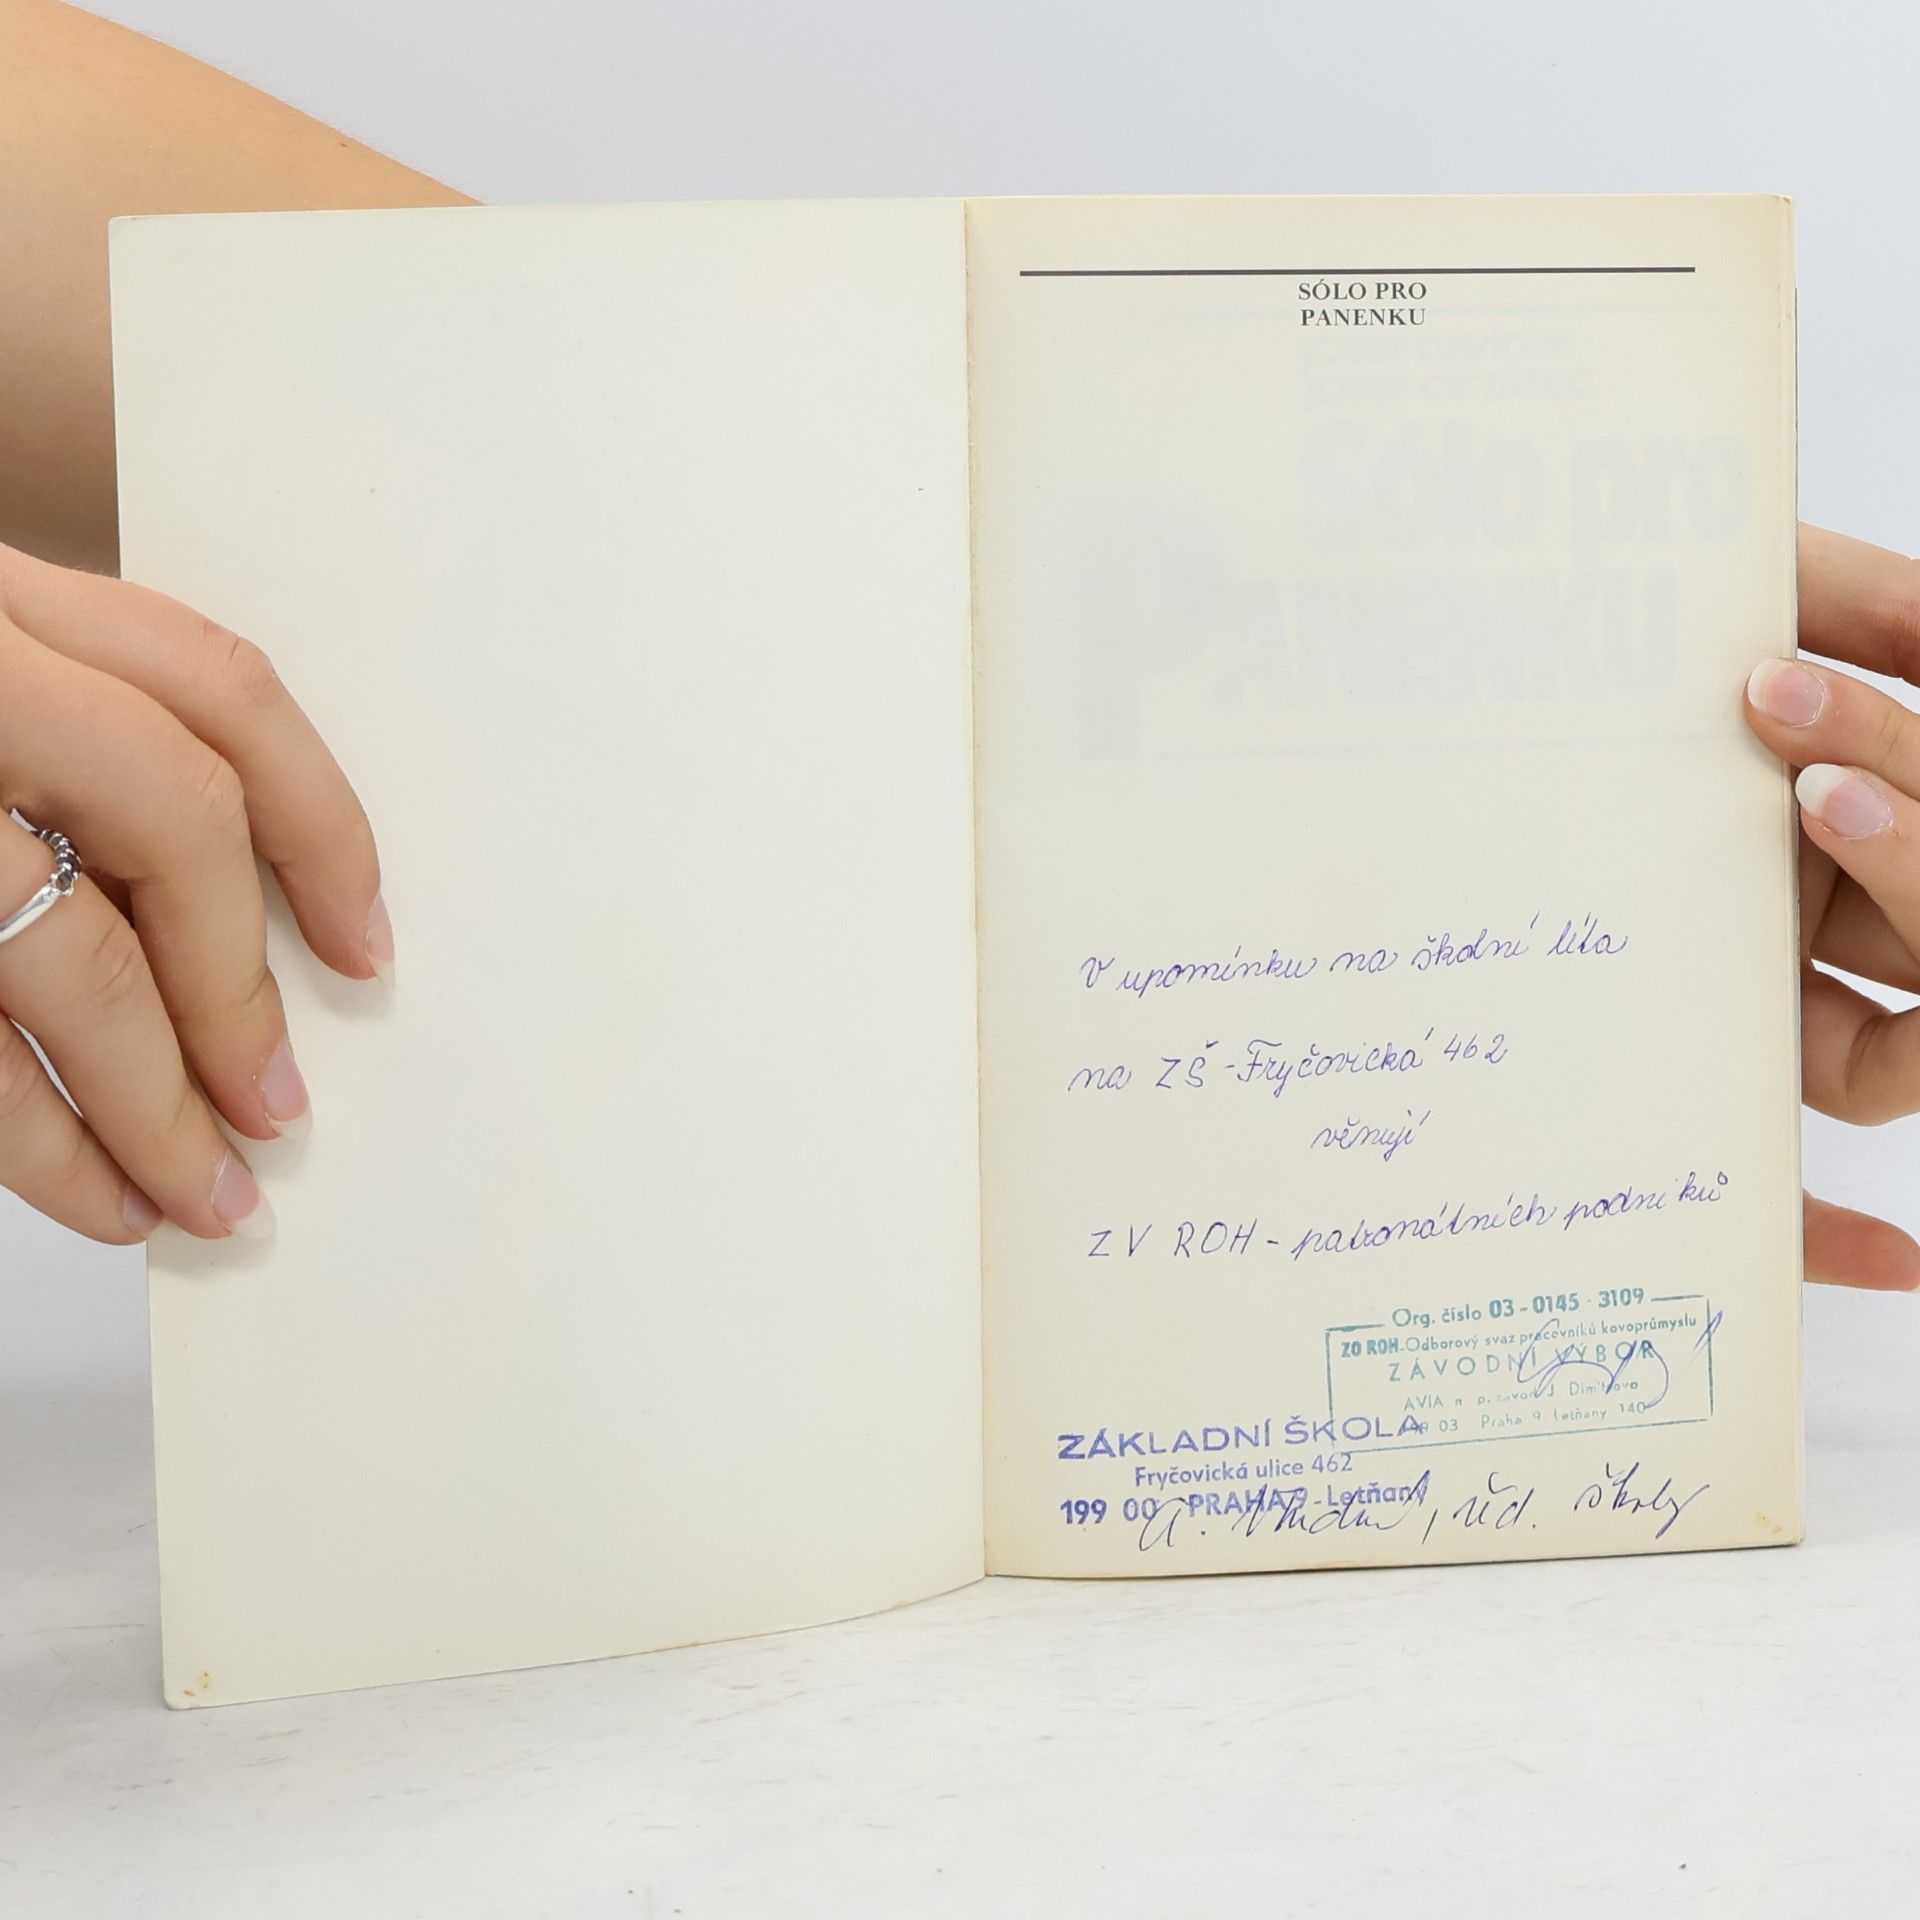 SÓLO PRO
PANENKU
Sólo pro
PANENKU
V upomínku na školní léta
na ZŠ - Fryčovická 462
věnují
ZV ROH - patronátních podniků
Org. číslo 03 - 0145 - 3109
ZO ROH-Odborový svaz pracovníků kovoprůmyslu
ZÁVODNÍ VÝBOR
AVIA n. p. závod J. Dimitrova
199 03 Praha 9, Letňany 140
ZÁKLADNÍ ŠKOLA
Fryčovická ulice 462
199 00 PRAHA 9 - Letňany
, řed. školy